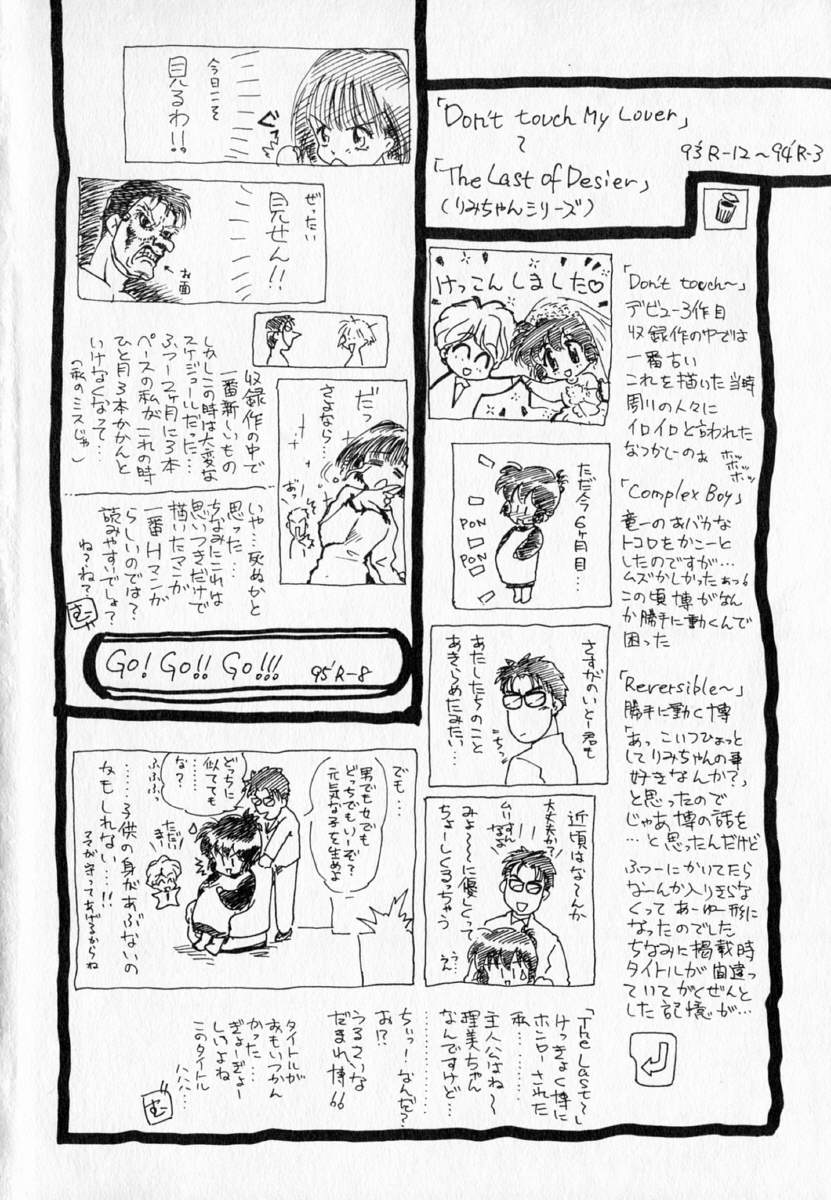 「Don't touch My Lover」
〜
「The Last of Desier」
(りみちゃんシリーズ)
93'R-12〜94'R-3
「Don't touch〜」
デビュー3作目
収録作の中では
一番古い
これを描いた当時
周りの人々に
イロイロと言われた
なつかしーのぉ
ホッ
ホッ
ホッ
「Complex Boy」
竜一のおバカな
トコロをかこーと
したのですが…
ムズかしかったぁっ。
この頃博がなん
か勝手に動くんで
困った
「Reversible〜」
勝手に動く博
「あっ こいつひょっと
してりみちゃんの事
好きなんか?」
と思ったので
じゃあ博の話を
…と思ったんだけど
ふつーにかいてたら
なーんか入りきらな
くって あーゆー形に
なったのでした
ちなみに掲載時
タイトルが間違っ
ていてがくぜんと
した記憶が…
けっこんしました♡
ただ今6ヶ月目…
PON
PON
さすがのいとー君も
あたしたちのこと
あきらめたみたい…
近頃はな〜んか
みょ〜〜に優しくって
ちょーしくるっちゃう
大丈夫か?
ムリすん
なよ
う…
うん
でも…
男でも女でも
どっちでもいーぞ?
元気な子を生めよ
どっちに
似てても
な?
ふふふっ
ただい
まー
……子供の身があぶないの
かもしれない…!!
ママが守ってあげるからね
「The Last〜」
けっきょく博に
ホンローされた
私………
主人公はね〜
理美ちゃん
なんですけど…
…………
ちぃっーなんだ?
お!?
うるさいな
だまれ博。。
タイトルが
おもいつかん
かった…
ぎょーぎょー
しいよね
このタイトル
ハハハ…
む
今日こそ
見るわ!!
ぐっ
ぜったい
見せん!!
お面
だっ
さよなら…
おっ
収録作の中で
一番新しいもの
しかしこの時は大変な
スケジュールだった…
ふつー2ヶ月に3本
ペースの私がこれの時
ひと月3本かかんと
いけなくなって…
(私のミスじゃ)
いや…死ぬかと
思った…
ちなみにこれは
思いつきだけで
描いたマンガ
一番Hマンガ
らしいのでは?
読みやすいでしょ?
ね?ね?
む
Go! Go!! Go!!! 95'R-8